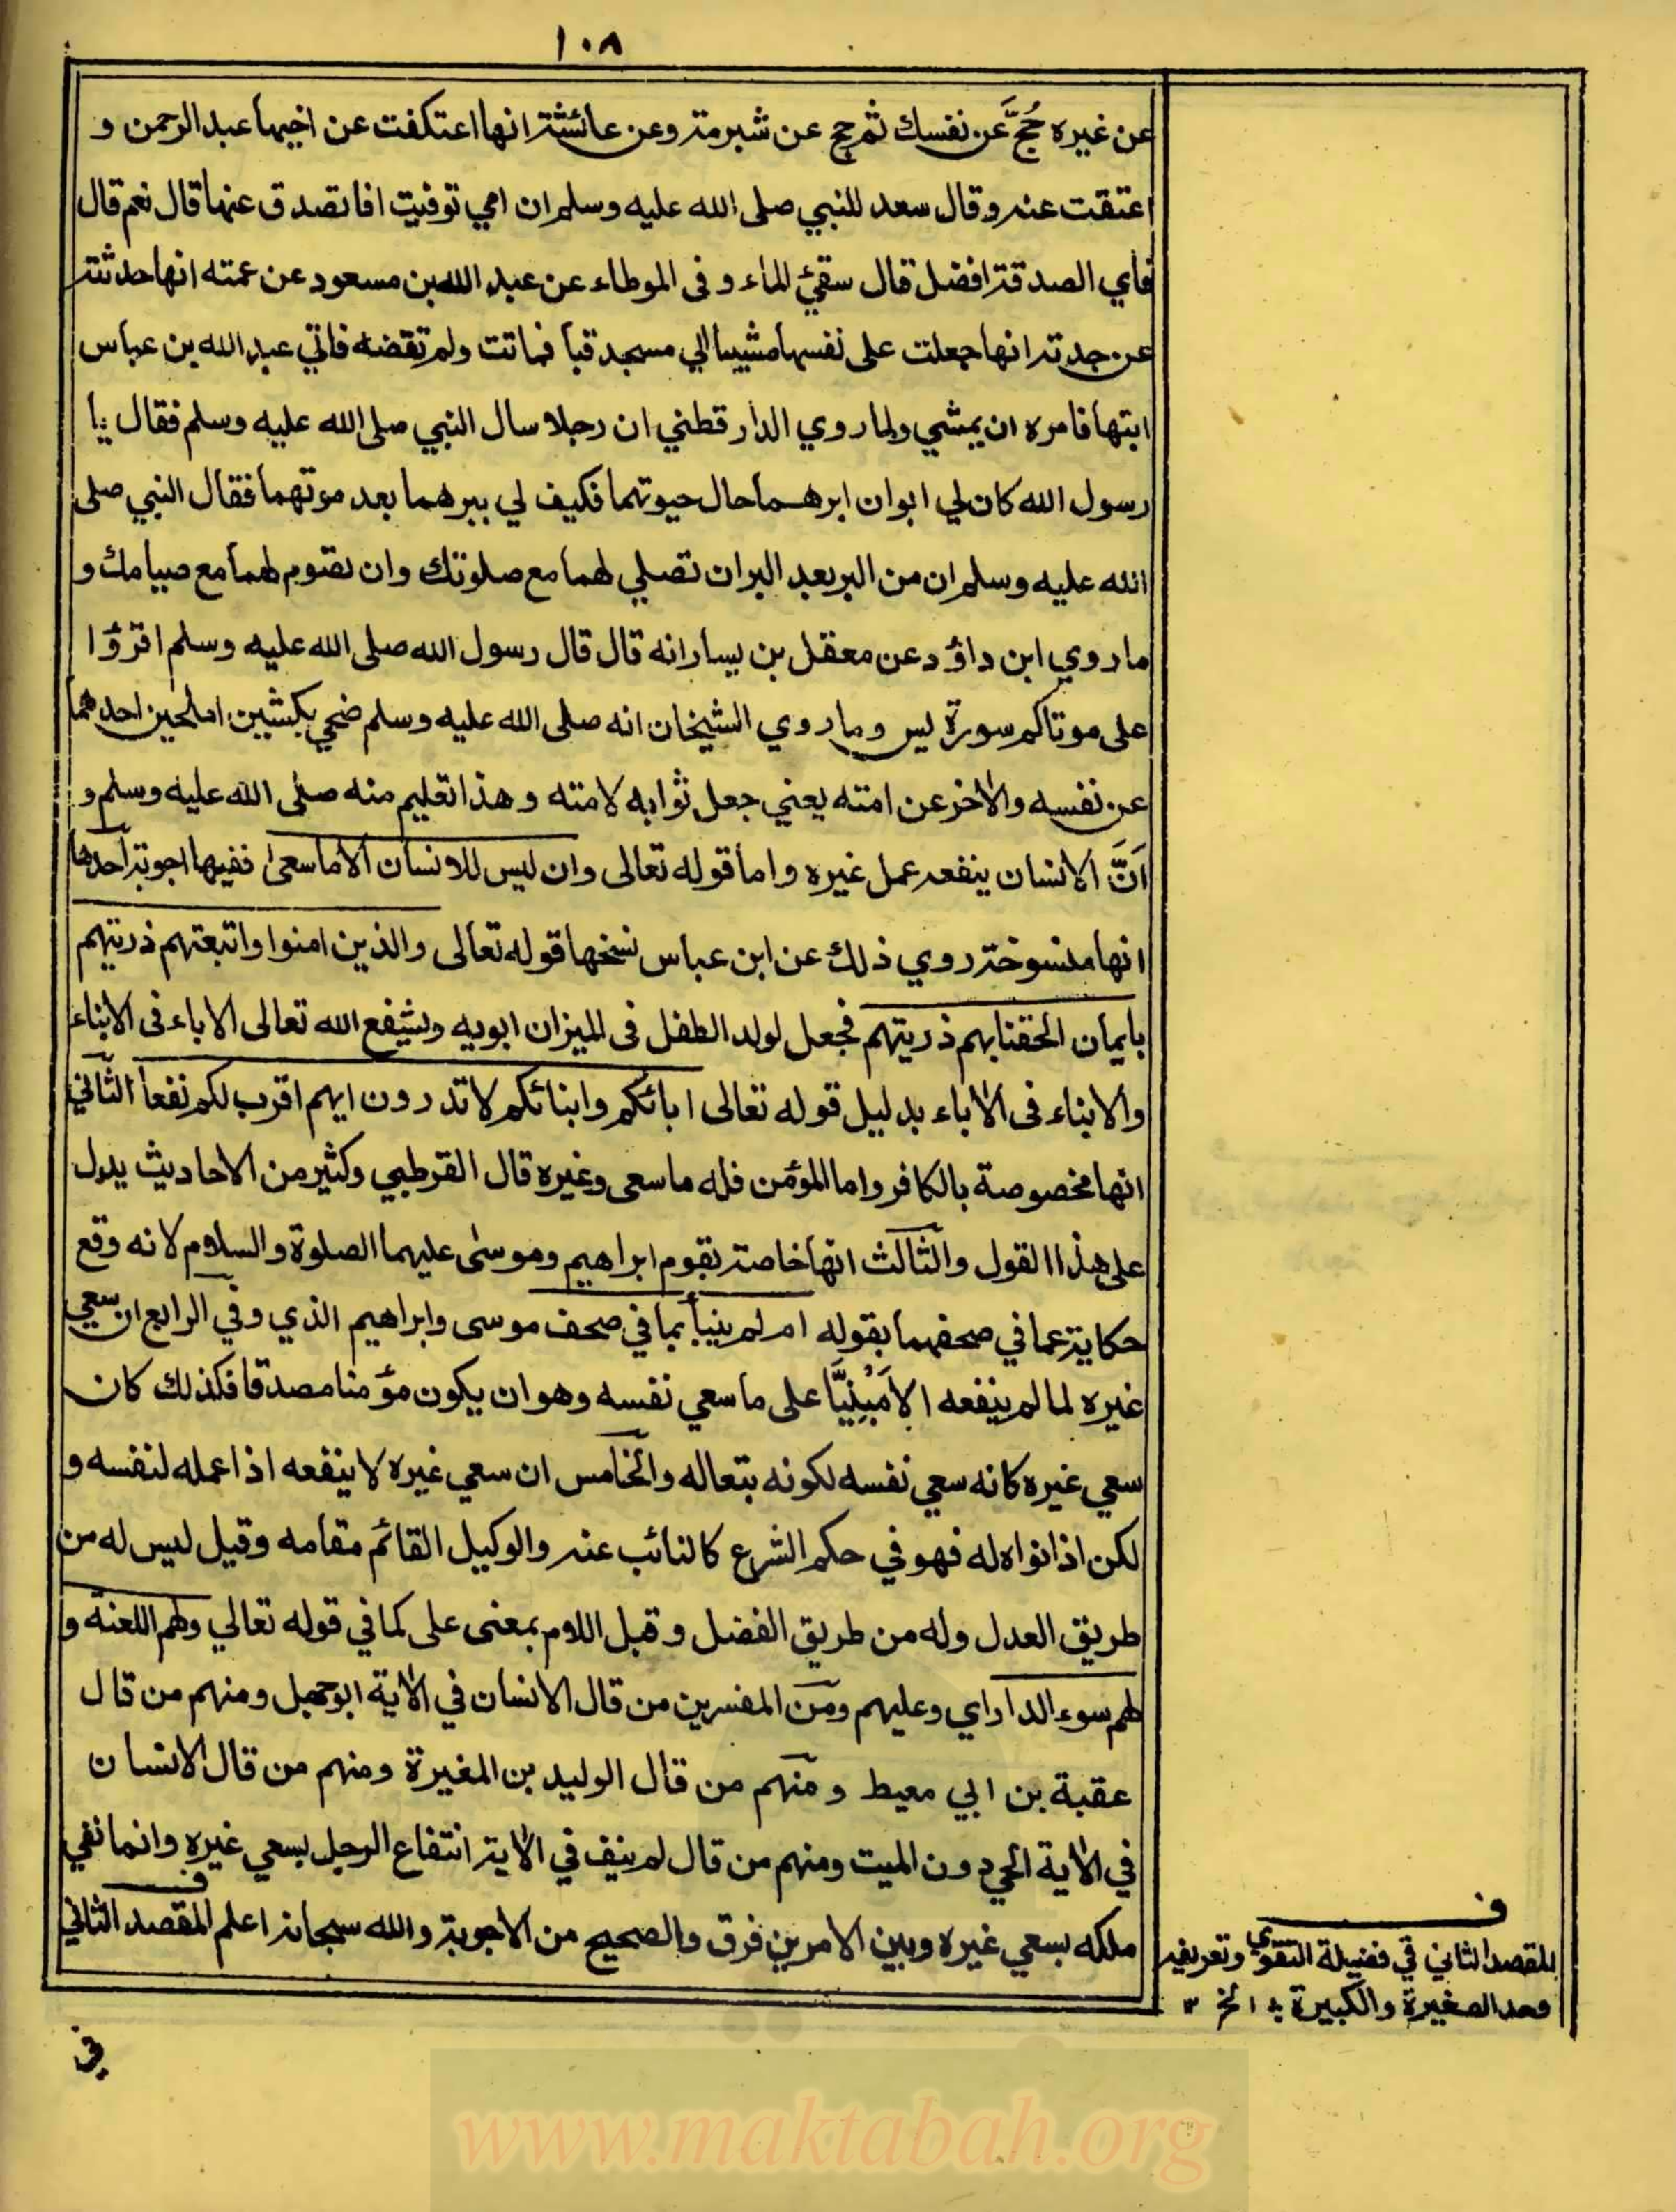 ١٠٨
عن غيره حُجَّ عن نفسك ثم حج عن شبرمة وعن عائشة انها اعتكفت عن اخيها عبد الرحمن و
اعتقت عنه وقال سعد للنبي صلى الله عليه وسلم ان امي توفيت افاتصدق عنها قال نعم قال
فاي الصدقة افضل قال سقيُ الماء وفى الموطاء عن عبد الله بن مسعود عن عمته انها حدثته
عن جدته انها جعلت على نفسها مشيا الي مسجد قبا فماتت ولم تقضه فاتي عبد الله بن عباس
ابنتها فامره ان يمشي ولما روي الدار قطني ان رجلا سال النبي صلى الله عليه وسلم فقال يا
رسول الله كان لي ابوان ابرهما حال حيوتهما فكيف لي ببرهما بعد موتهما فقال النبي صلى
الله عليه وسلم ان من البر بعد البر ان تصلي لهما مع صلوتك وان تصوم لهما مع صيامك و
ما روي ابن داؤد عن معقل بن يسار انه قال قال رسول الله صلى الله عليه وسلم اقرؤا
على موتاكم سورة يس وما روي الشيخان انه صلى الله عليه وسلم ضحي بكبشين املحين احدهما
عن نفسه والاخر عن امته يعني جعل ثوابه لامته وهذا تعليم منه صلى الله عليه وسلم و
اَنَّ الانسان ينفعه عمل غيره واما قوله تعالى وان ليس للانسان الا ما سعى ففيها اجوبة احدها
انها منسوخة روي ذلك عن ابن عباس نسخها قوله تعالى والذين امنوا واتبعتهم ذريتهم
بايمان الحقنا بهم ذريتهم فجعل لولد الطفل فى الميزان ابويه ويشفع الله تعالى الاباء فى الابناء
والابناء فى الاباء بدليل قوله تعالى ابائكم وابنائكم لا تدرون ايهم اقرب لكم نفعا الثاني
انها مخصوصة بالكافر واما المؤمن فله ما سعى وغيره قال القرطبي وكثير من الاحاديث يدل
على هذا القول والثالث انها خاصة بقوم ابراهيم وموسى عليهما الصلوة والسلام لانه وقع
حكاية عما في صحفهما بقوله ام لم ينبأ بما في صحف موسى وابراهيم الذي وفي الرابع ان سعي
غيره لما لم ينفعه الا مَبْنِيًّا على ما سعي نفسه وهو ان يكون مؤمنا مصدقا فكذلك كان
سعي غيره كانه سعي نفسه لكونه بتعاله والخامس ان سعي غيره لا ينفعه اذا عمله لنفسه و
لكن اذا نواه له فهو في حكم الشرع كالنائب عنه والوكيل القائم مقامه وقيل ليس له من
طريق العدل وله من طريق الفضل وقيل اللام بمعنى على كما في قوله تعالي ولهم اللعنة و
لهم سوء الدار اي وعليهم ومن المفسرين من قال الانسان في الاية ابو جهل ومنهم من قال
عقبة بن ابي معيط ومنهم من قال الوليد بن المغيرة ومنهم من قال الانسان
في الاية الحي دون الميت ومنهم من قال لم ينف في الاية انتفاع الرجل بسعي غيره وانما نفي
ملكه بسعي غيره وبين الامرين فرق والصحيح من الاجوبة والله سبحانه اعلم المقصد الثاني
ف
المقصد الثاني في فضيلة التقوي وتعريفه
وحد الصغيرة والكبيرة
في
www.maktabah.org